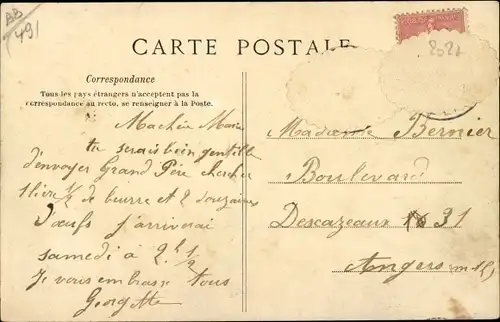 BB
491
CARTE POSTALE
2021
Correspondance
Tous les pays étrangers n'acceptent pas la
correspondance au recto, se renseigner à la Poste.
A
Ma chère Marie
tu serais bien gentille
d'envoyer Grand Père chercher
1 livre 1/2 de beurre et 2 douzaines
d'œufs j'arriverai
samedi à 2h 1/2
Je vous embrasse tous
Georgette
Madame Bernier
Boulevard
Descazeaux 31
Angers